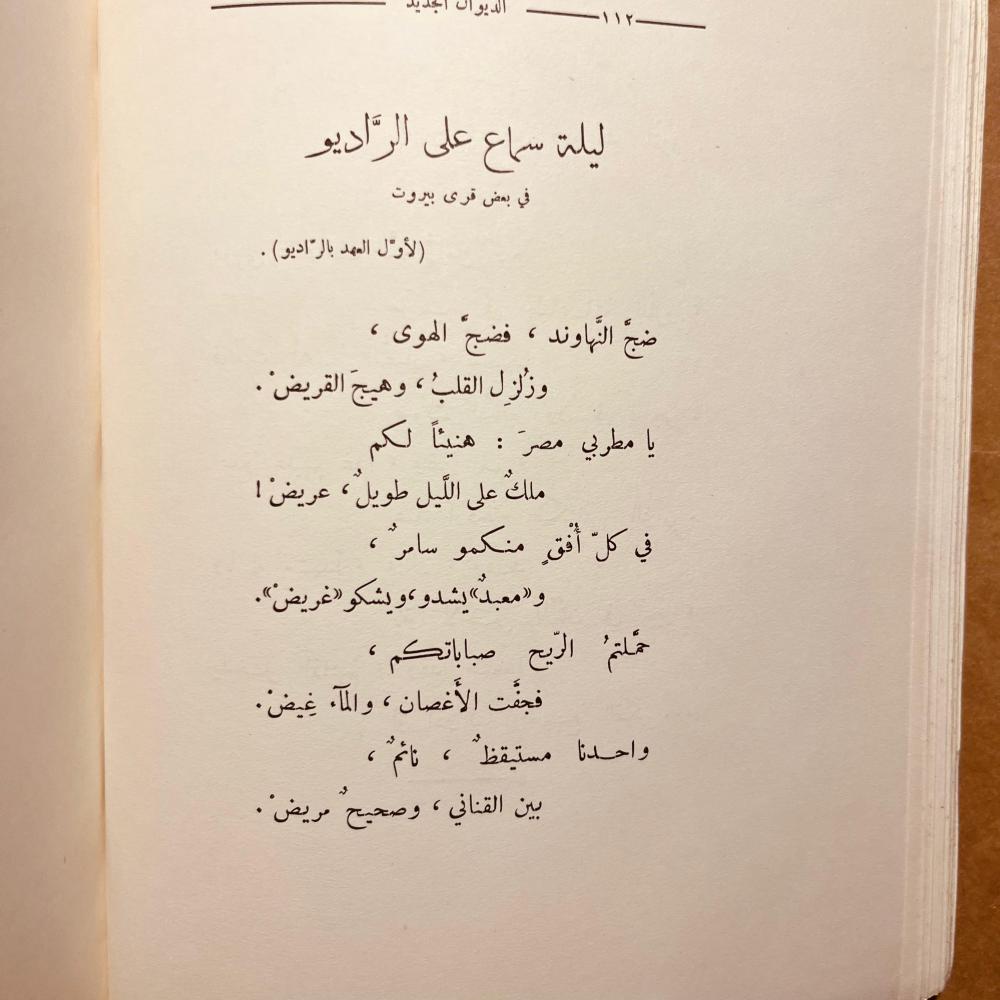 ١١٢ الديوان الجديد
ليلة سماع على الرَّاديو
في بعض قرى بيروت
(لأوّل العهد بالرّاديو) .
ضجَّ النَّهاوند ، فضجَّ الهوى ،
وزُلزِل القلبُ ، وهيجَ القريضْ .
يا مطربي مصرَ : هنيئاً لكم
ملكٌ على اللَّيل طويلٌ ، عريضْ !
في كلّ أُفْقٍ منكمو سامرٌ ،
و«معبدٌ» يشدو، ويشكو «غريضْ».
حمَّلتمُ الرّيح صباباتكم ،
فجفَّت الأَغصان ، والمآء غِيضْ .
واحدنا مستيقظٌ ، نائمٌ ،
بين القناني ، وصحيحٌ مريضْ .